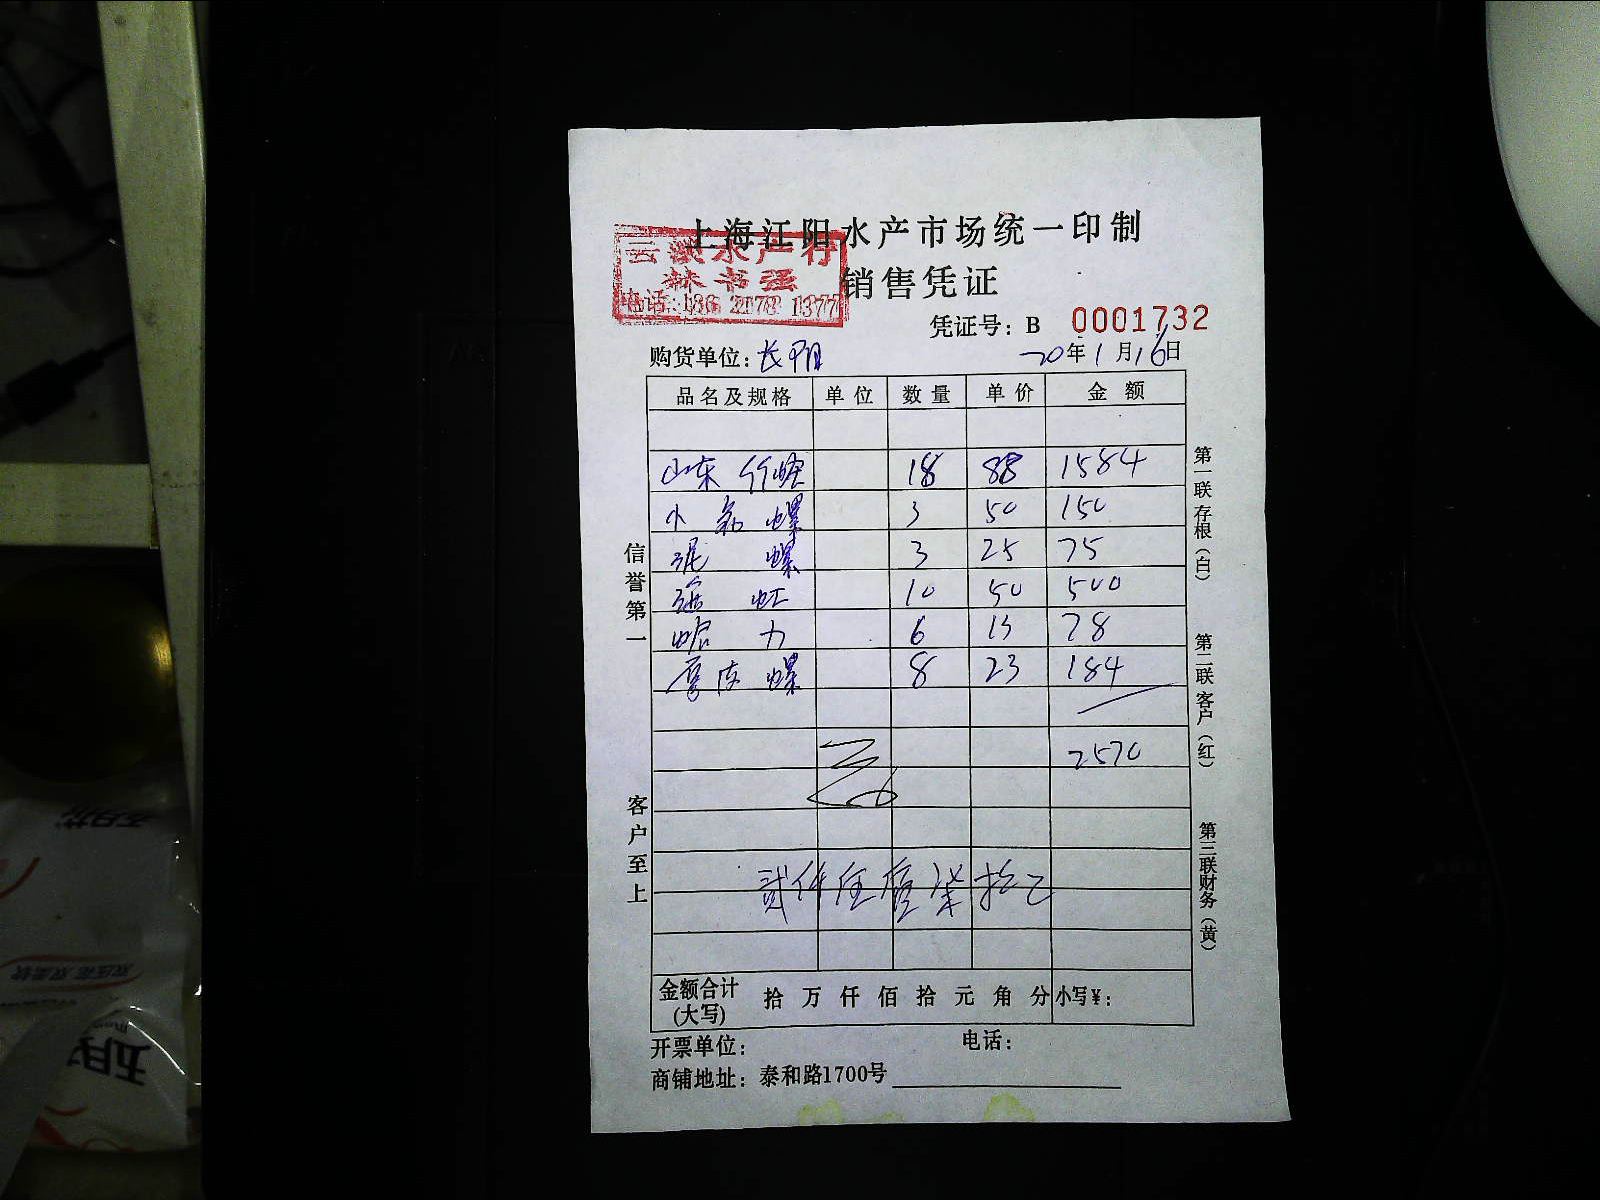 上海江阳水产市场统一印制
云溪水产行
林书强
销售凭证
凭证号：B 0001732
购货单位：长阳 20年1月16日
品名及规格 单位 数量 单价 金额
山东 竹蛏 18 88 1584
小 螺 3 50 150
泥 螺 3 25 75
虹 10 50 500
蛤 力 6 13 78
螺 8 23 184
2570
贰仟伍 柒拾
金额合计(大写) 拾 万 仟 佰 拾 元 角 分 小写¥：
开票单位： 电话：
商铺地址：泰和路1700号
信誉第一
客户至上
第一联存根（白）
第二联客户（红）
第三联财务（黄）